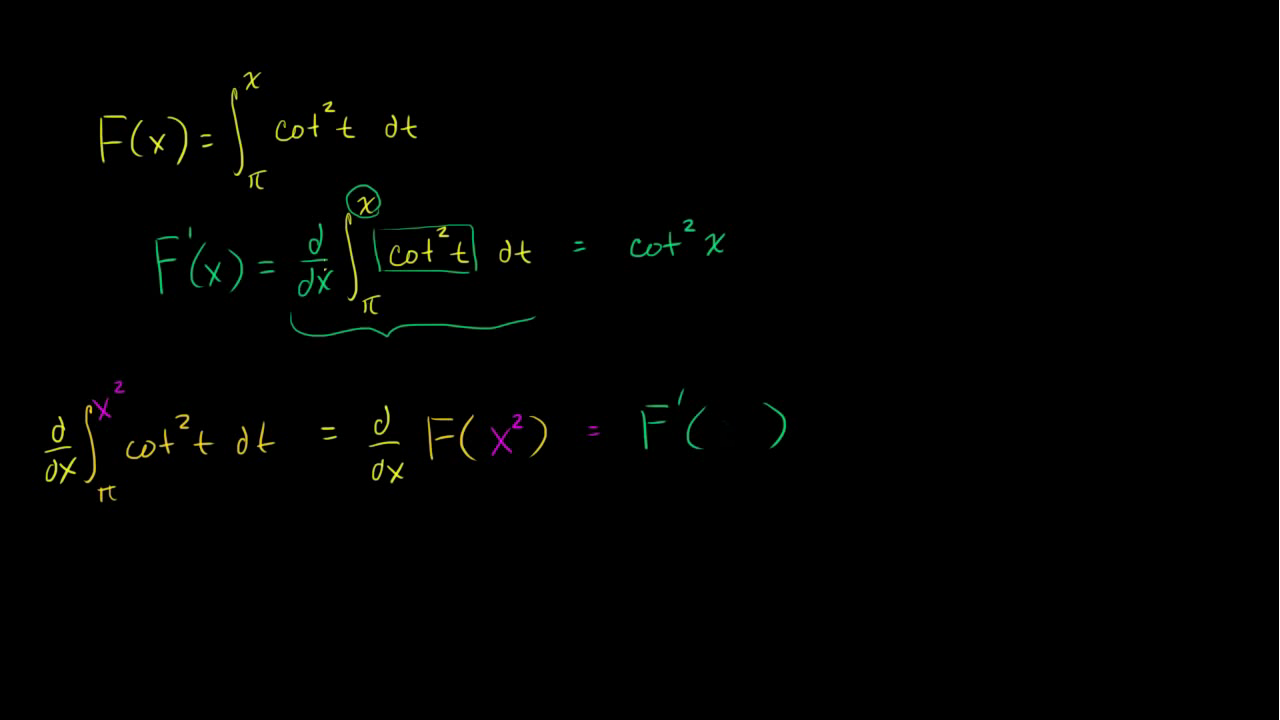 F(x) = ∫_π^x cot² t dt
F'(x) = d/dx ∫_π^x cot² t dt = cot² x
d/dx ∫_π^{x²} cot² t dt = d/dx F(x²) = F'( )